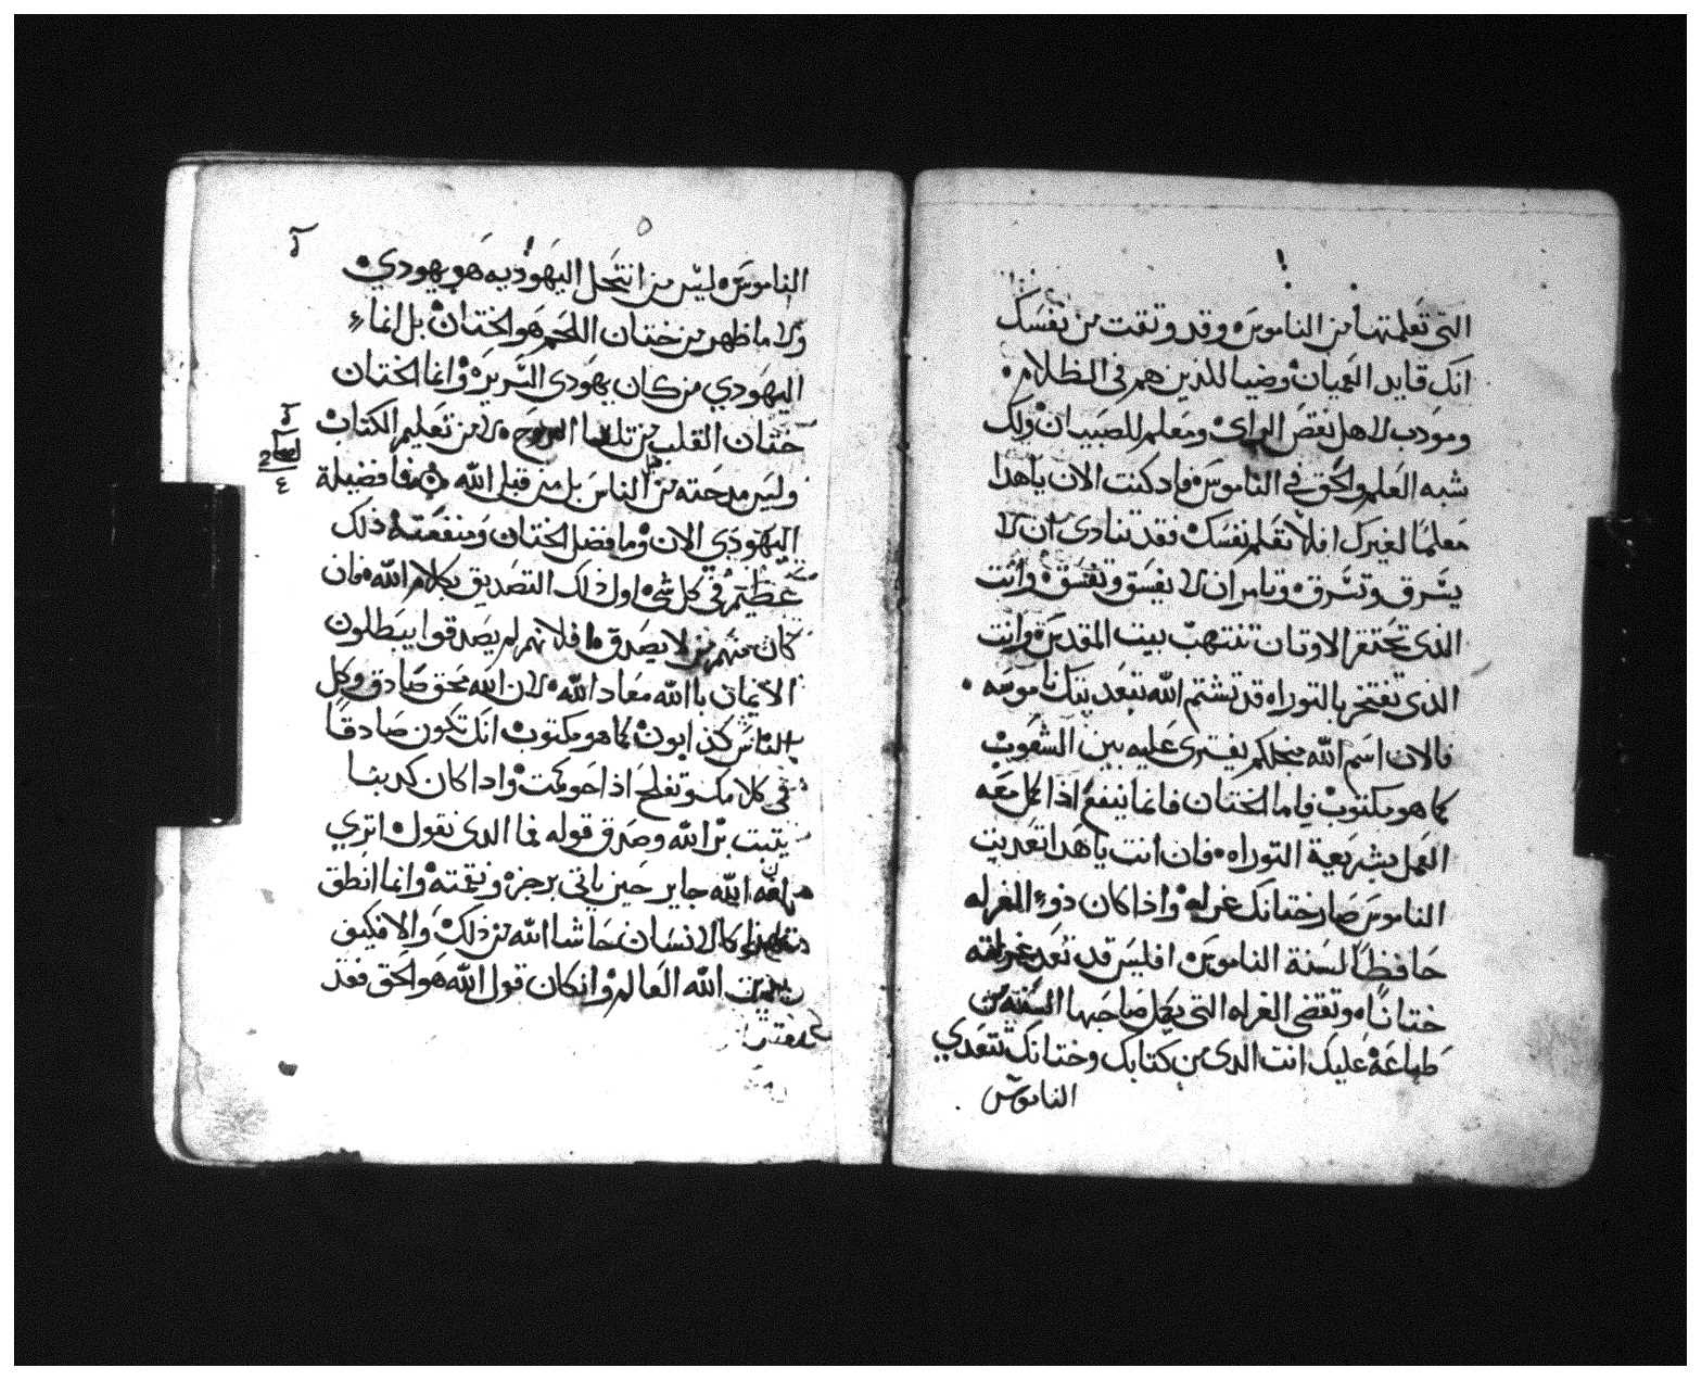 التى تعلمتها من الناموس ه وقد وتقت من نفسك
انك قايد العميان وضيا للذين هم فى الظلام •
ومودب لاهل نقص الراى ومعلم للصبيان ولك
شبه العلم والحق في الناموس فاد كنت الان ياهذا
معلمًا لغيرك افلا تعلم نفسك فقد تنادى ان لا
يسرق وتسرق ه وتامر ان لا يفسق وتفسق ه وانت
الذى تحتقر الاوتان تنتهب بيت المقدس ه وانت
الذى تفتخر بالتوراه قد تشتم الله بتعديتك ناموسه •
فالان اسم الله من اجلكم يفترى عليه بين الشعوب
كما هو مكتوب فاما الختان فانما ينفع اذا كمل معه
العمل بشريعة التوراه • فان انت ياهدا تعديت
الناموس صار ختانك غرله واذا كان ذوء الغرله
حافظًا لسنة الناموس ه افليس قد تعد غرلته
ختانًا ه وتقضى الغرله التى يكمل صاحبها السنه من
طباعه عليك انت الدى من كتابك وختانك تتعدي
الناموس
٥
الناموس ه ليس من انتحل اليهوديه هو يهودي •
ولا ما ظهر من ختان اللحم هو الختان بل انما
اليهودي من كان يهودى السريره وانما الختان
ختان القلب من تلقا الروح • لا من تعليم الكتاب
وليس مدحته من الناس بل من قبل الله فما فضيلة
اليهودي الان وما فضل الختان ومنفعته ذلك
عظيم في كل شى اول ذلك التصديق بكلام الله • فان
كان منهم من لا يصدق افلانهم لم يصدقوا يبطلون
الايمان باالله معاد الله • لان الله محق صادق وكل
الناس كذابون كما هو مكتوب انك تكون صادقًا
فى كلامك وتفلح اذا حوكمت واذا كان كدبنا
يتبت بر الله وصدق قوله فما الدى نقول اترى
الله جاير حين ياتى برجزه ونقمته وانما انطق
كالانسان حاشا الله من ذلك والا فكيف
يدين الله العالم وان كان قول الله هو الحق فقد